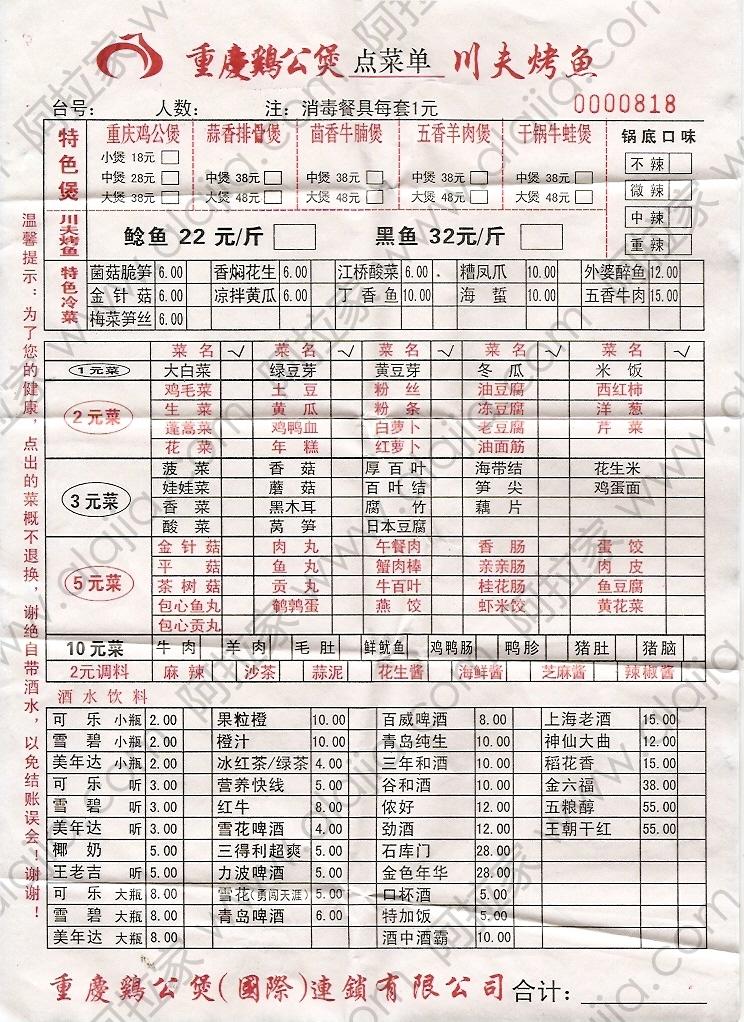 重慶鷄公煲 点菜单 川夫烤鱼
台号： 人数： 注：消毒餐具每套1元 0000818
特色煲 重庆鸡公煲 蒜香排骨煲 茴香牛腩煲 五香羊肉煲 干锅牛蛙煲 锅底口味
小煲 18元 不辣
中煲 28元 中煲 38元 中煲 38元 中煲 38元 中煲 38元 微辣
大煲 38元 大煲 48元 大煲 48元 大煲 48元 大煲 48元 中辣
川夫烤鱼 鲶鱼 22 元/斤 黑鱼 32元/斤 重辣
特色冷菜 菌菇脆笋 6.00 香焖花生 6.00 江桥酸菜 6.00 糟凤爪 10.00 外婆醉鱼 12.00
金针菇 6.00 凉拌黄瓜 6.00 丁香鱼 10.00 海蜇 10.00 五香牛肉 15.00
梅菜笋丝 6.00
菜名 √ 菜名 √ 菜名 √ 菜名 √ 菜名 √
1元菜 大白菜 绿豆芽 黄豆芽 冬瓜 米饭
2元菜 鸡毛菜 土豆 粉丝 油豆腐 西红柿
生菜 黄瓜 粉条 冻豆腐 洋葱
蓬蒿菜 鸡鸭血 白萝卜 老豆腐 芹菜
花菜 年糕 红萝卜 油面筋
3元菜 菠菜 香菇 厚百叶 海带结 花生米
娃娃菜 蘑菇 百叶结 笋尖 鸡蛋面
香菜 黑木耳 腐竹 藕片
酸菜 莴笋 日本豆腐
5元菜 金针菇 肉丸 午餐肉 香肠 蛋饺
平菇 鱼丸 蟹肉棒 亲亲肠 肉皮
茶树菇 贡丸 牛百叶 桂花肠 鱼豆腐
包心鱼丸 鹌鹑蛋 燕饺 虾米饺 黄花菜
包心贡丸
10元菜 牛肉 羊肉 毛肚 鲜鱿鱼 鸡鸭肠 鸭胗 猪肚 猪脑
2元调料 麻辣 沙茶 蒜泥 花生酱 海鲜酱 芝麻酱 辣椒酱
酒水饮料
可乐 小瓶 2.00 果粒橙 10.00 百威啤酒 8.00 上海老酒 15.00
雪碧 小瓶 2.00 橙汁 10.00 青岛纯生 10.00 神仙大曲 12.00
美年达 小瓶 2.00 冰红茶/绿茶 4.00 三年和酒 10.00 稻花香 15.00
可乐 听 3.00 营养快线 5.00 谷和酒 10.00 金六福 38.00
雪碧 听 3.00 红牛 8.00 侬好 12.00 五粮醇 55.00
美年达 听 3.00 雪花啤酒 4.00 劲酒 12.00 王朝干红 55.00
椰奶 5.00 三得利超爽 5.00 石库门 28.00
王老吉 听 5.00 力波啤酒 5.00 金色年华 28.00
可乐 大瓶 8.00 雪花(勇闯天涯) 5.00 口杯酒 5.00
雪碧 大瓶 8.00 青岛啤酒 6.00 特加饭 5.00
美年达 大瓶 8.00 酒中酒霸 10.00
温馨提示：为了您的健康，点出的菜概不退换，谢绝自带酒水，以免结账误会！谢谢！
重慶鷄公煲(國際)連鎖有限公司 合计：
阿拉家 www.alajia.com